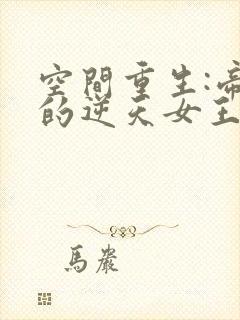 空間重生:帝
的逆天女王
馬嚴